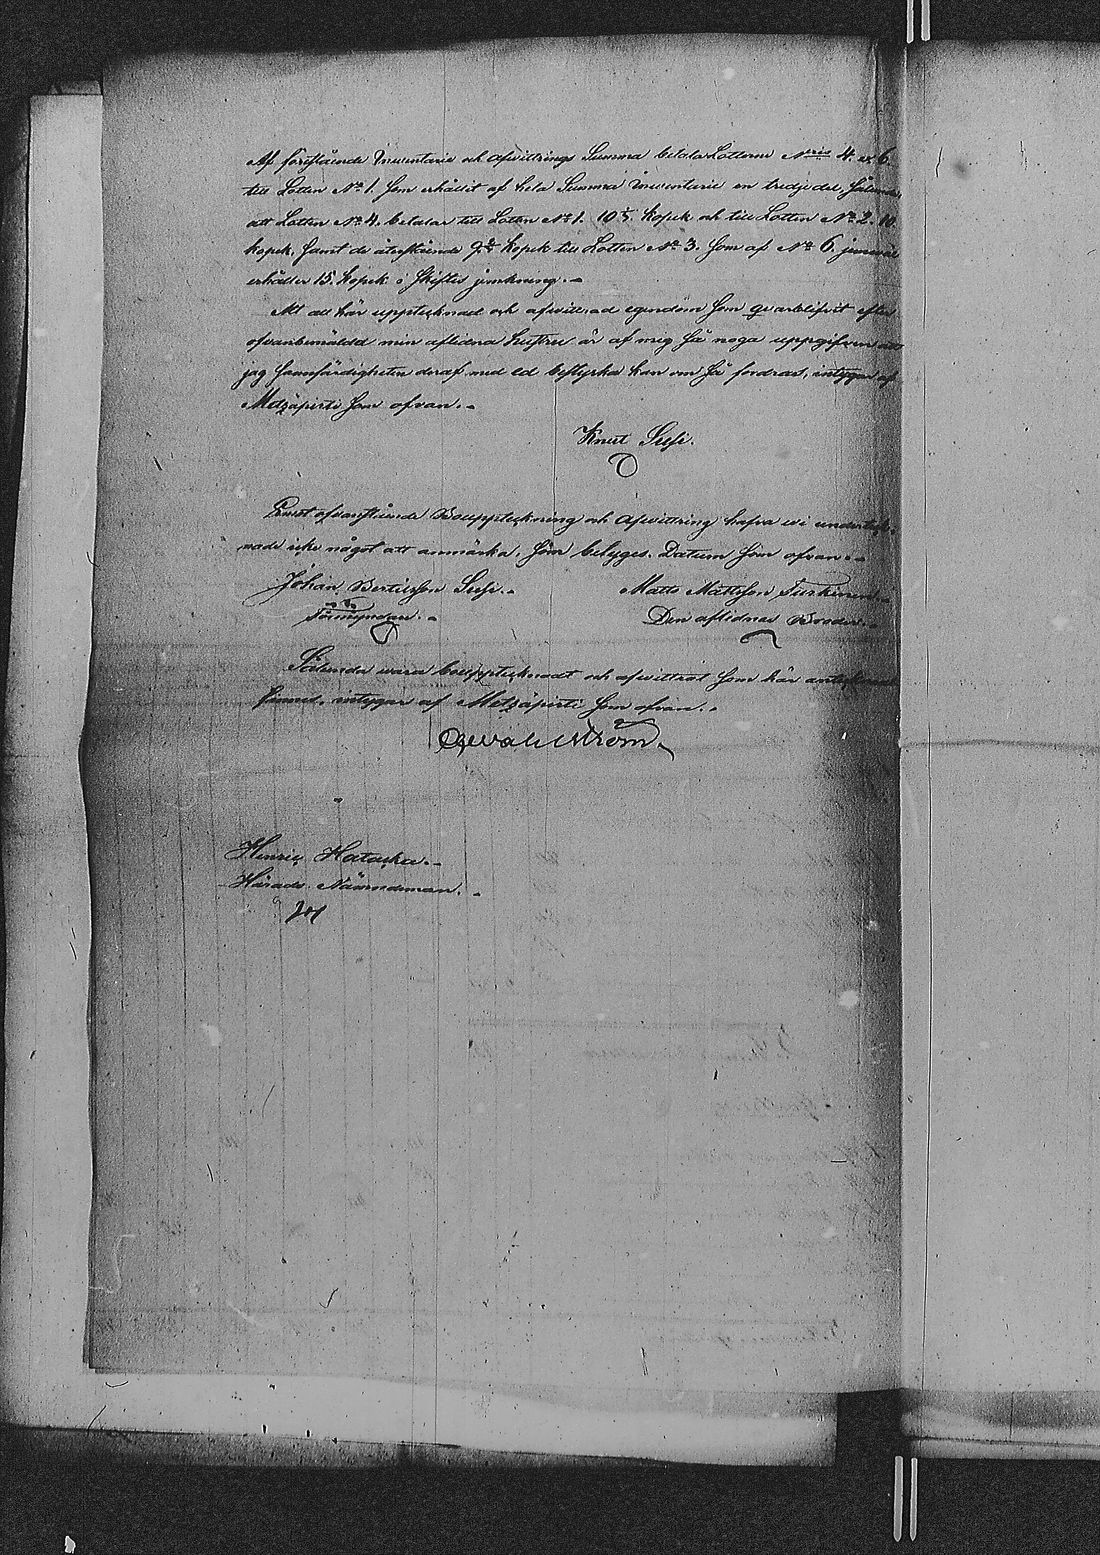 Af förestående Inventarie och Afwittrings Summa betala Lotterne N:ris 4. et 6.
till Lotten N:o 1. som erhållit af hela Summa Inventarie en tredjedel, sålunda,
att Lotten N:o 4. betalar till Lotten N:o 1. 10 5/. Kopek och till Lotten N:o 2. 10
kopek, samt de återstående Kopek till Lotten N:o 3. som af N:o 6. jemväl
erhåller 15. kopek i skiftes jemkning.
Att all här upptecknad och afwittrad egendom som qvarblifvit efter
ofvanbemäldd min aflidna hustru är af mig så noga uppgifven att
jag sannfärdigheten deraf med ed bestyrka kan om så fordras, intygar af
Metzäpirti som ofvan.
Knut Susi.
Emot ofvanstående Bouppteckning och Afwittring hafva wi underteck-
nade icke något att anmärka, som betyges. Datum som ofvan.
Johan Bertilsson Susi. Matts Mattsson Turkinen.
Förmyndare. Den aflidnes Broder.
Sålunda wara boupptecknadt och afwittrat som här antecknad
finnes, intygar af Metzäpirti som ofvan.
Henric Hatacka.
Härads Nämndeman.